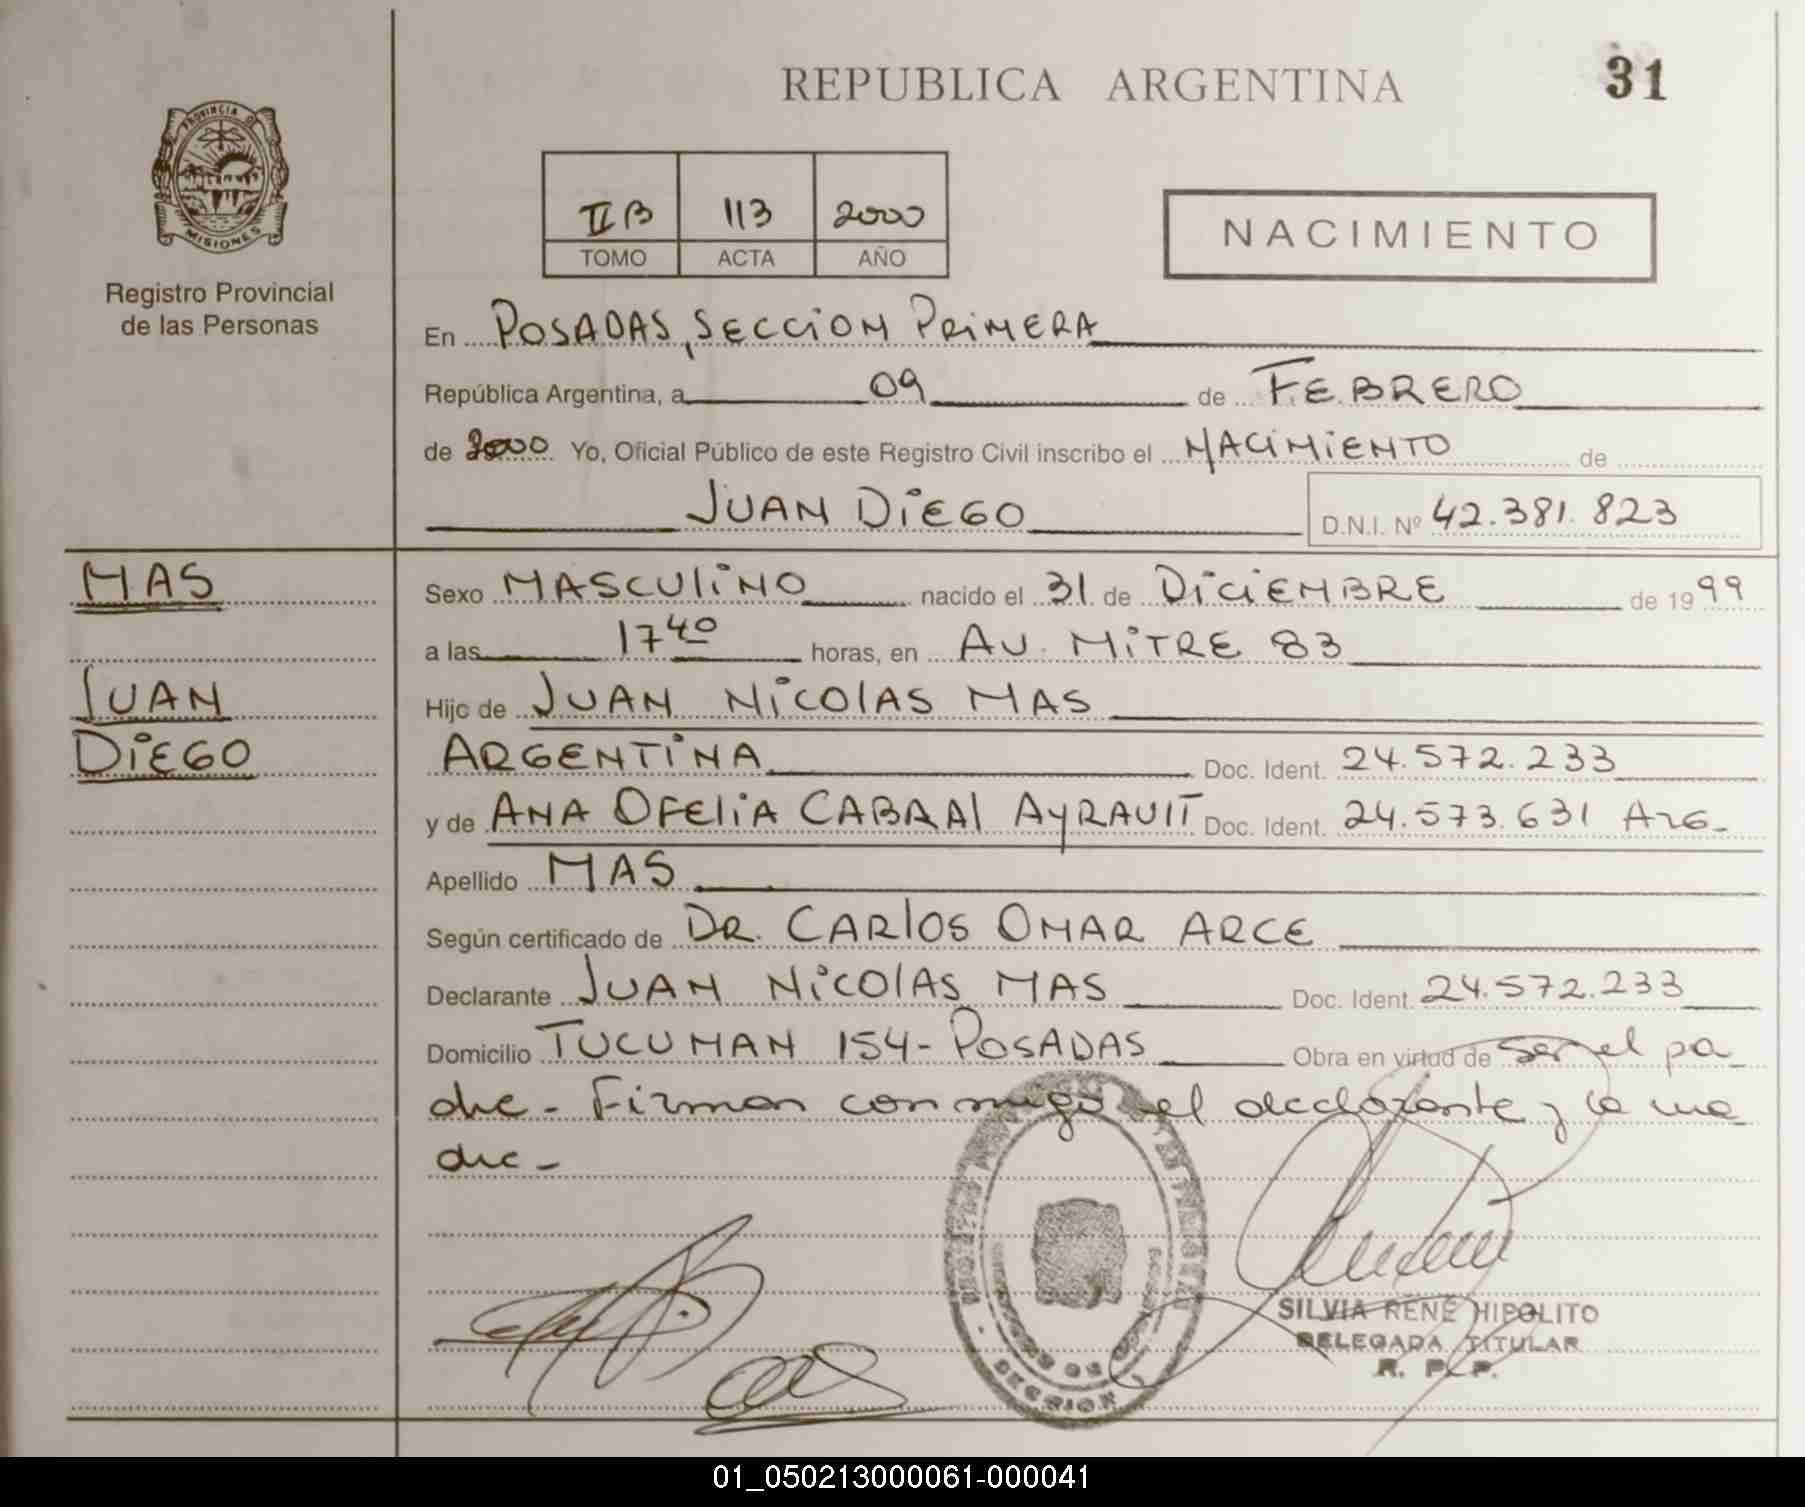 REPUBLICA ARGENTINA
31
PROVINCIA DE
MISIONES
Registro Provincial
de las Personas
II B 113 2000
TOMO ACTA AÑO
NACIMIENTO
En POSADAS, SECCION PRIMERA
República Argentina, a 09 de FEBRERO
de 2000 Yo, Oficial Público de este Registro Civil inscribo el NACIMIENTO de
JUAN DIEGO D.N.I. Nº 42.381.823
MAS
JUAN
DIEGO
Sexo MASCULINO nacido el 31 de DICIEMBRE de 1999
a las 17 40 horas, en AV. MITRE 83
Hijo de JUAN NICOLAS MAS
ARGENTINA Doc. Ident. 24.572.233
y de ANA OFELIA CABRAL AYRAULT Doc. Ident. 24.573.631 ARG-
Apellido MAS
Según certificado de DR. CARLOS OMAR ARCE
Declarante JUAN NICOLAS MAS Doc. Ident. 24.572.233
Domicilio TUCUMAN 154 - POSADAS Obra en virtud de ser el pa
dre - Firman conmigo el declarante y la ma
dre -
SECCION
SILVIA RENÉ HIPOLITO
DELEGADA TITULAR
R. P. P.
01_050213000061-000041